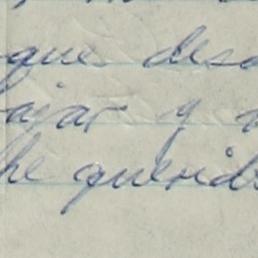 que desc
ajar y
he querid